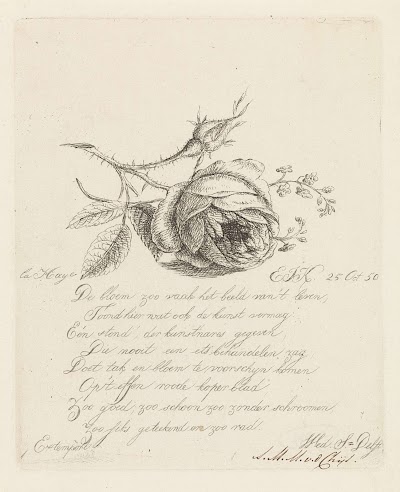 la Haye
E J K 25 Oct 50
De bloem zoo vaak het beeld van 't leven,
Toond hier wat ook de kunst vermag
Eén stond der kunstnares gegeven
Die nooit een ets behandelen zag
Doet tak en bloem te voorschijn komen
Op 't effen roode koper blad
Zoo goed, zoo schoon zoo zonder schroomen
Zoo fiks geteekend en zoo rad.
Extemporé
Wed. S= Delft